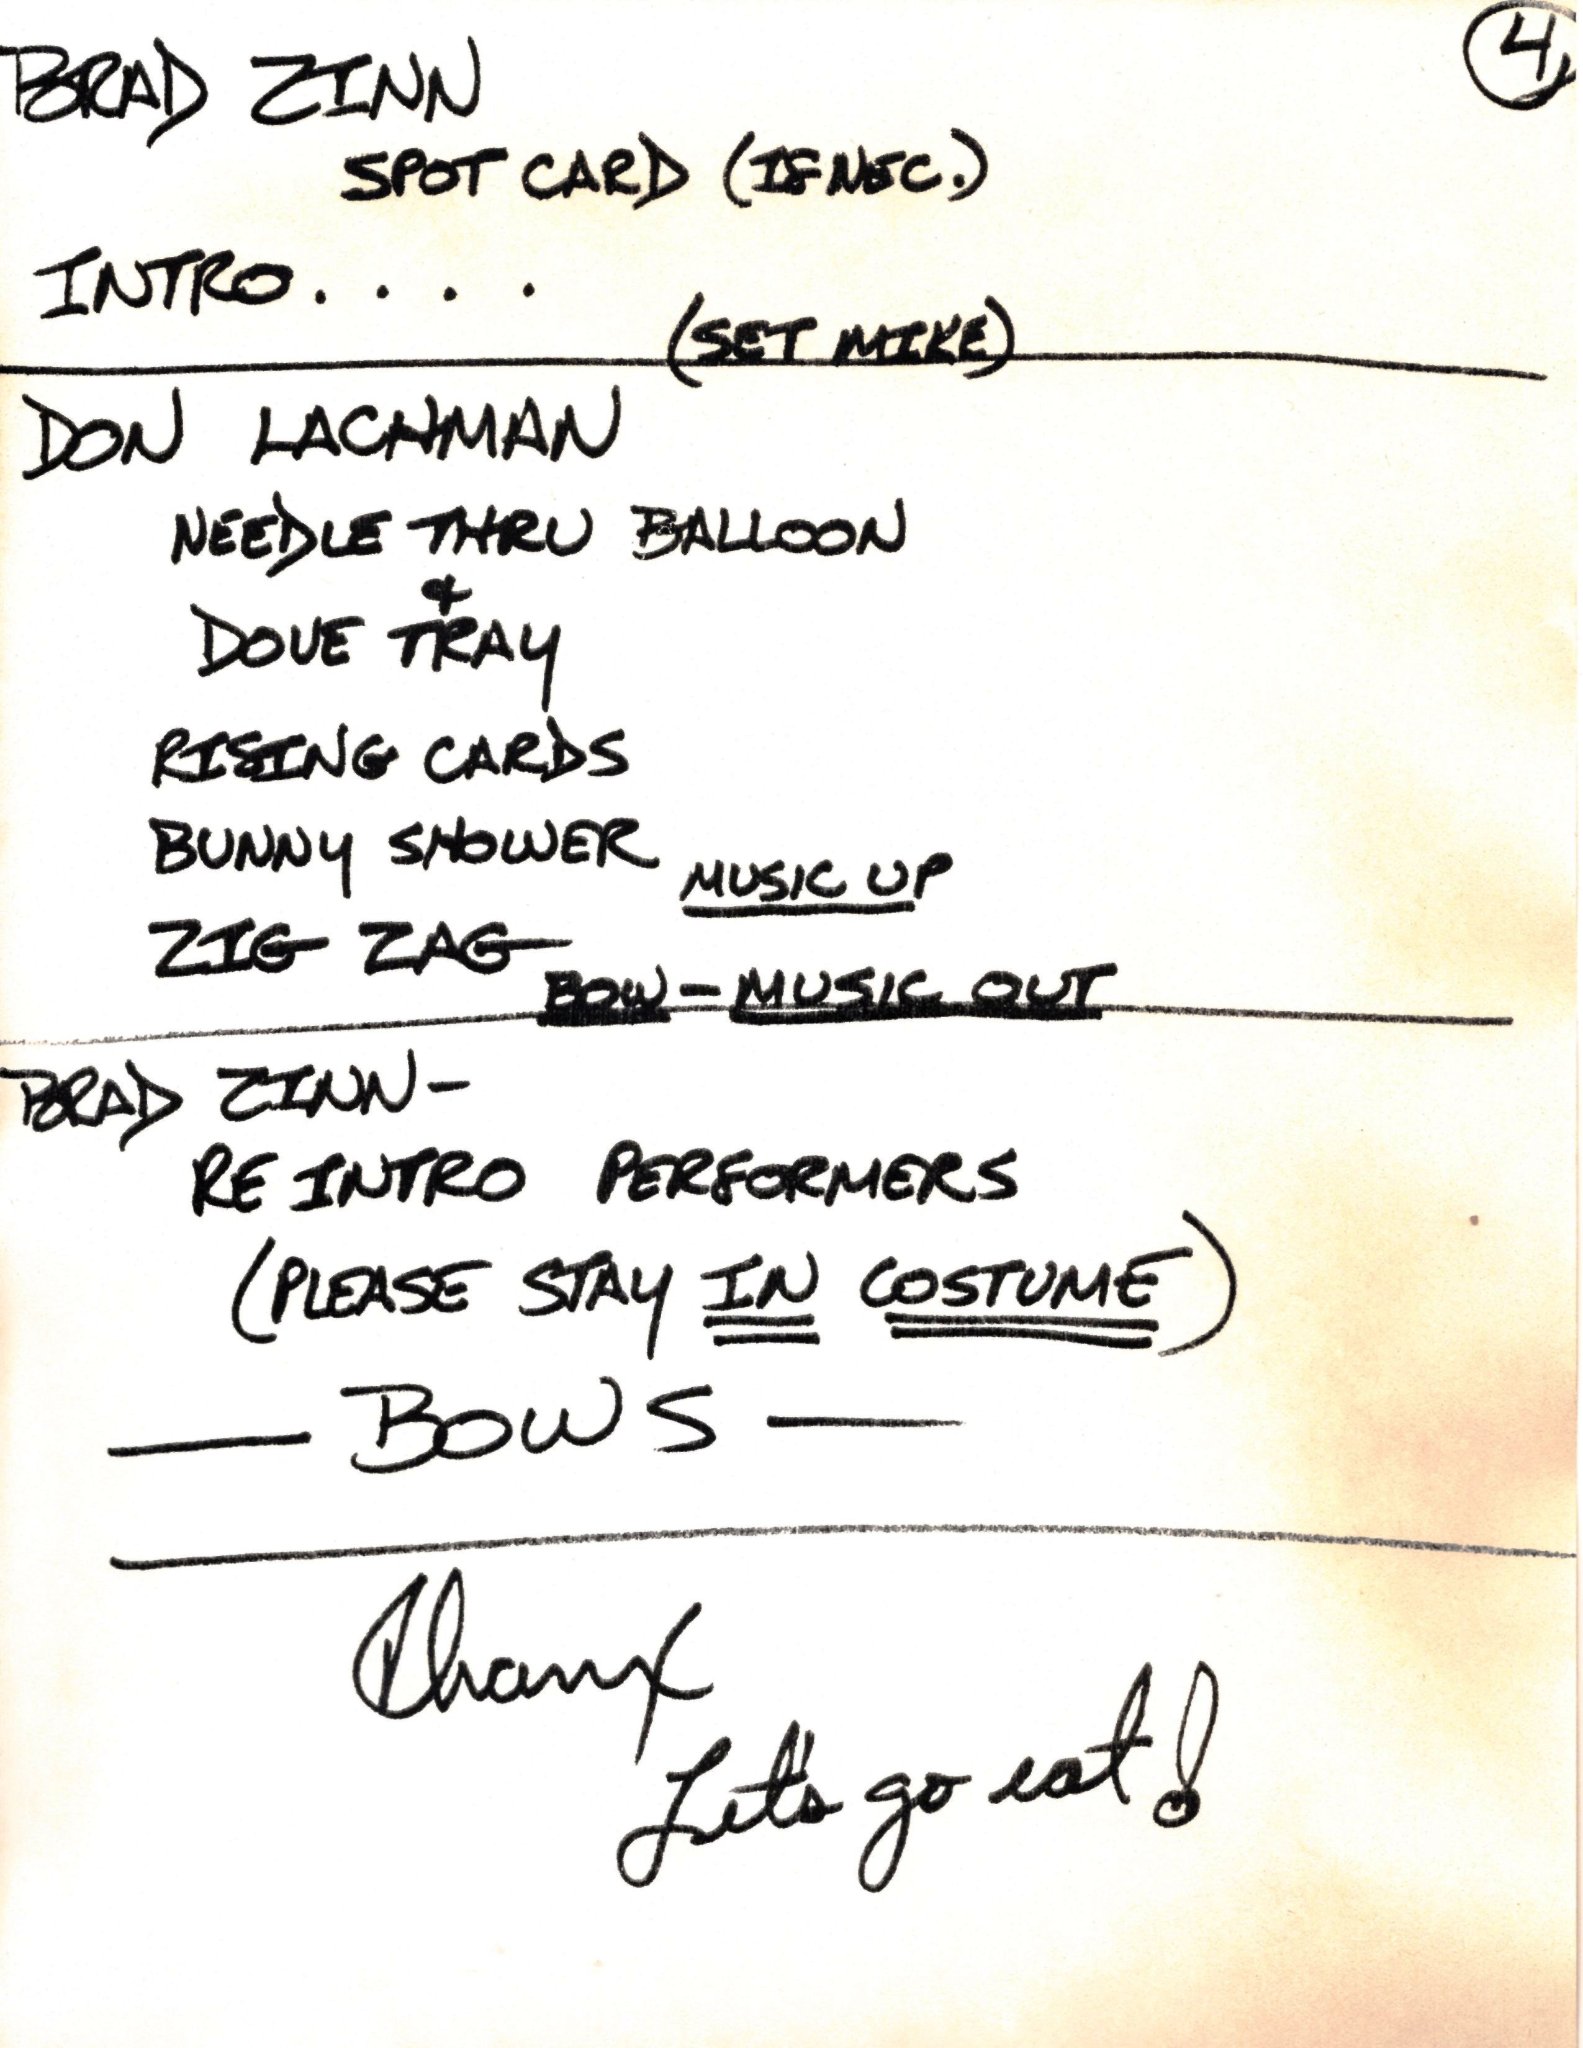 4
BRAD ZINN
SPOT CARD (IF NEC.)
INTRO....
(SET MIKE)
DON LACHMAN
NEEDLE THRU BALLOON
&
DOVE TRAY
RISING CARDS
BUNNY SHOWER
MUSIC UP
ZIG ZAG
BOW - MUSIC OUT
BRAD ZINN -
RE INTRO PERFORMERS
(PLEASE STAY IN COSTUME)
— BOWS —
Thanx
Let's go eat!